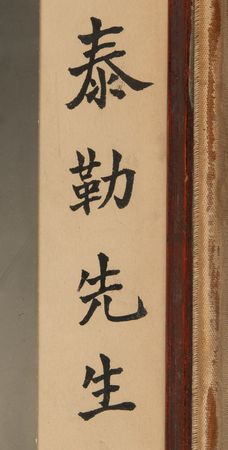 泰勒先生